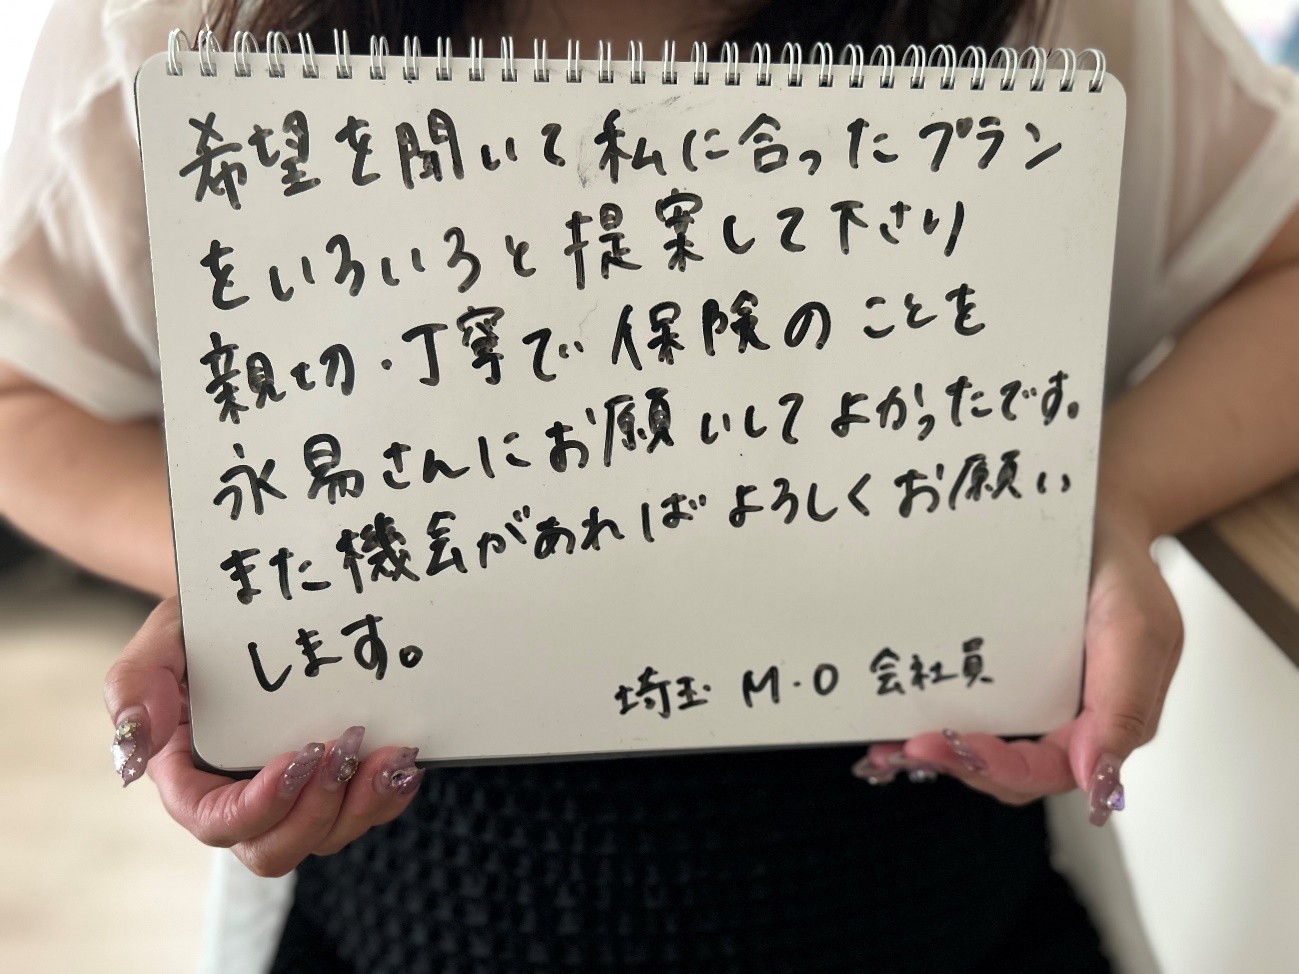 希望を聞いて私に合ったプラン
をいろいろと提案して下さり
親切・丁寧で保険のことを
永易さんにお願いしてよかったです。
また機会があればよろしくお願い
します。
埼玉 M・O 会社員